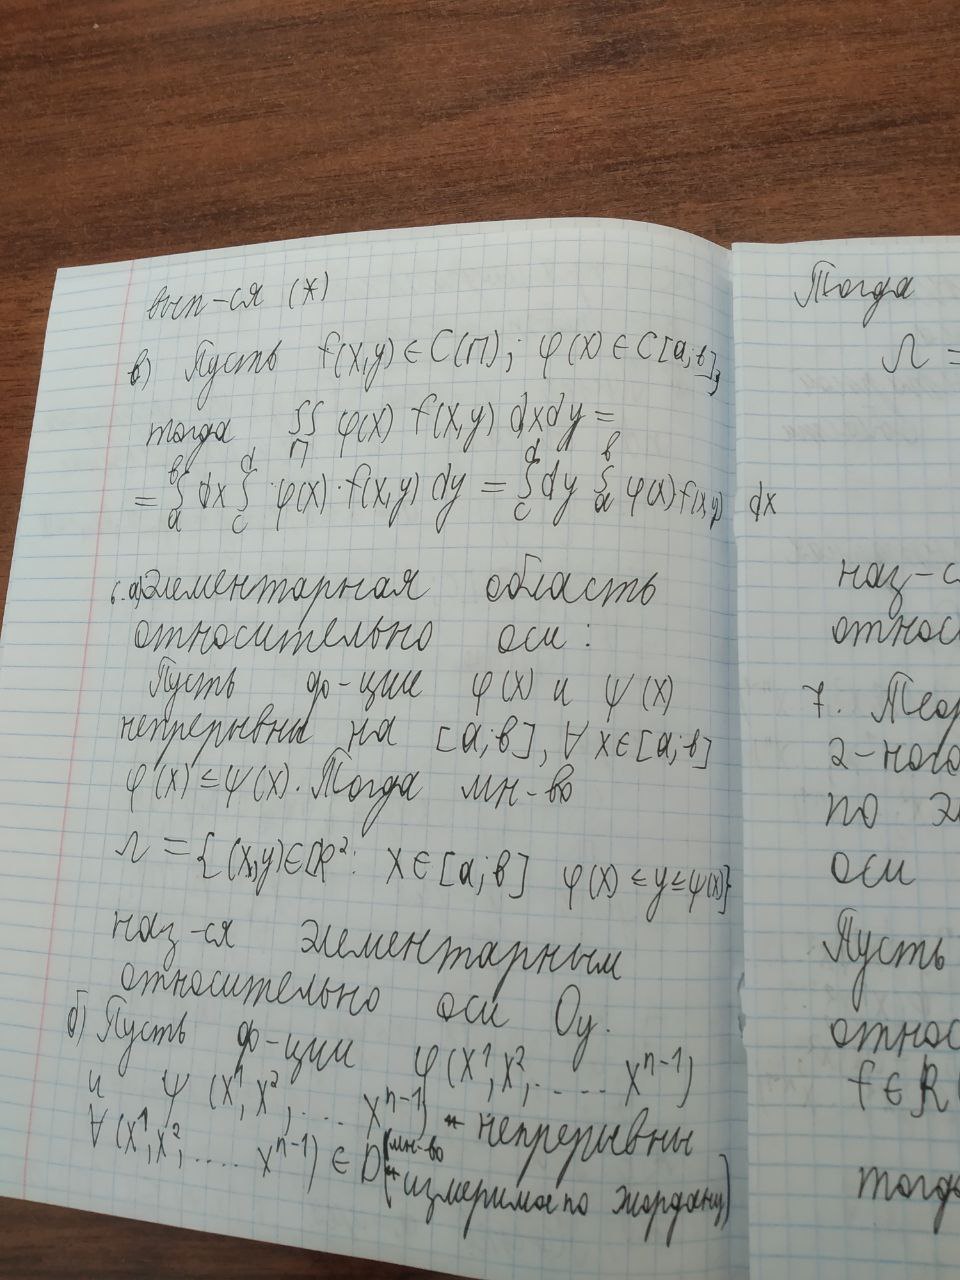 вып-ся (*)
в) Пусть f(x,y) ∈ C(П); φ(x) ∈ C[a;в],
тогда ∬ φ(x) f(x,y) dxdy =
П
= ∫ₐᵇ dx ∫꜀ᵈ φ(x)·f(x,y) dy = ∫꜀ᵈ dy ∫ₐᵇ φ(x) f(x,y) dx
6. а) Элементарная область
относительно оси:
Пусть ф-ции φ(x) и ψ(x)
непрерывны на [a;в], ∀ x∈[a;в]
φ(x) ≤ ψ(x). Тогда мн-во
Ω = {(x,y)∈ℝ²: x∈[a;в] φ(x) ≤ y ≤ ψ(x)}
наз-ся элементарным
относительно оси Oy.
б) Пусть ф-ции φ(x¹,x²,.....xⁿ⁻¹)
и ψ (x¹,x²,....xⁿ⁻¹) - непрерывны
∀(x¹,x²,....xⁿ⁻¹) ∈ D (мн-во
измеримое по Жордану)
Тогда
Ω =
наз-с
относ
7. Теор
2-ного
по эл
оси
Пусть
относ
f∈R(
тогда